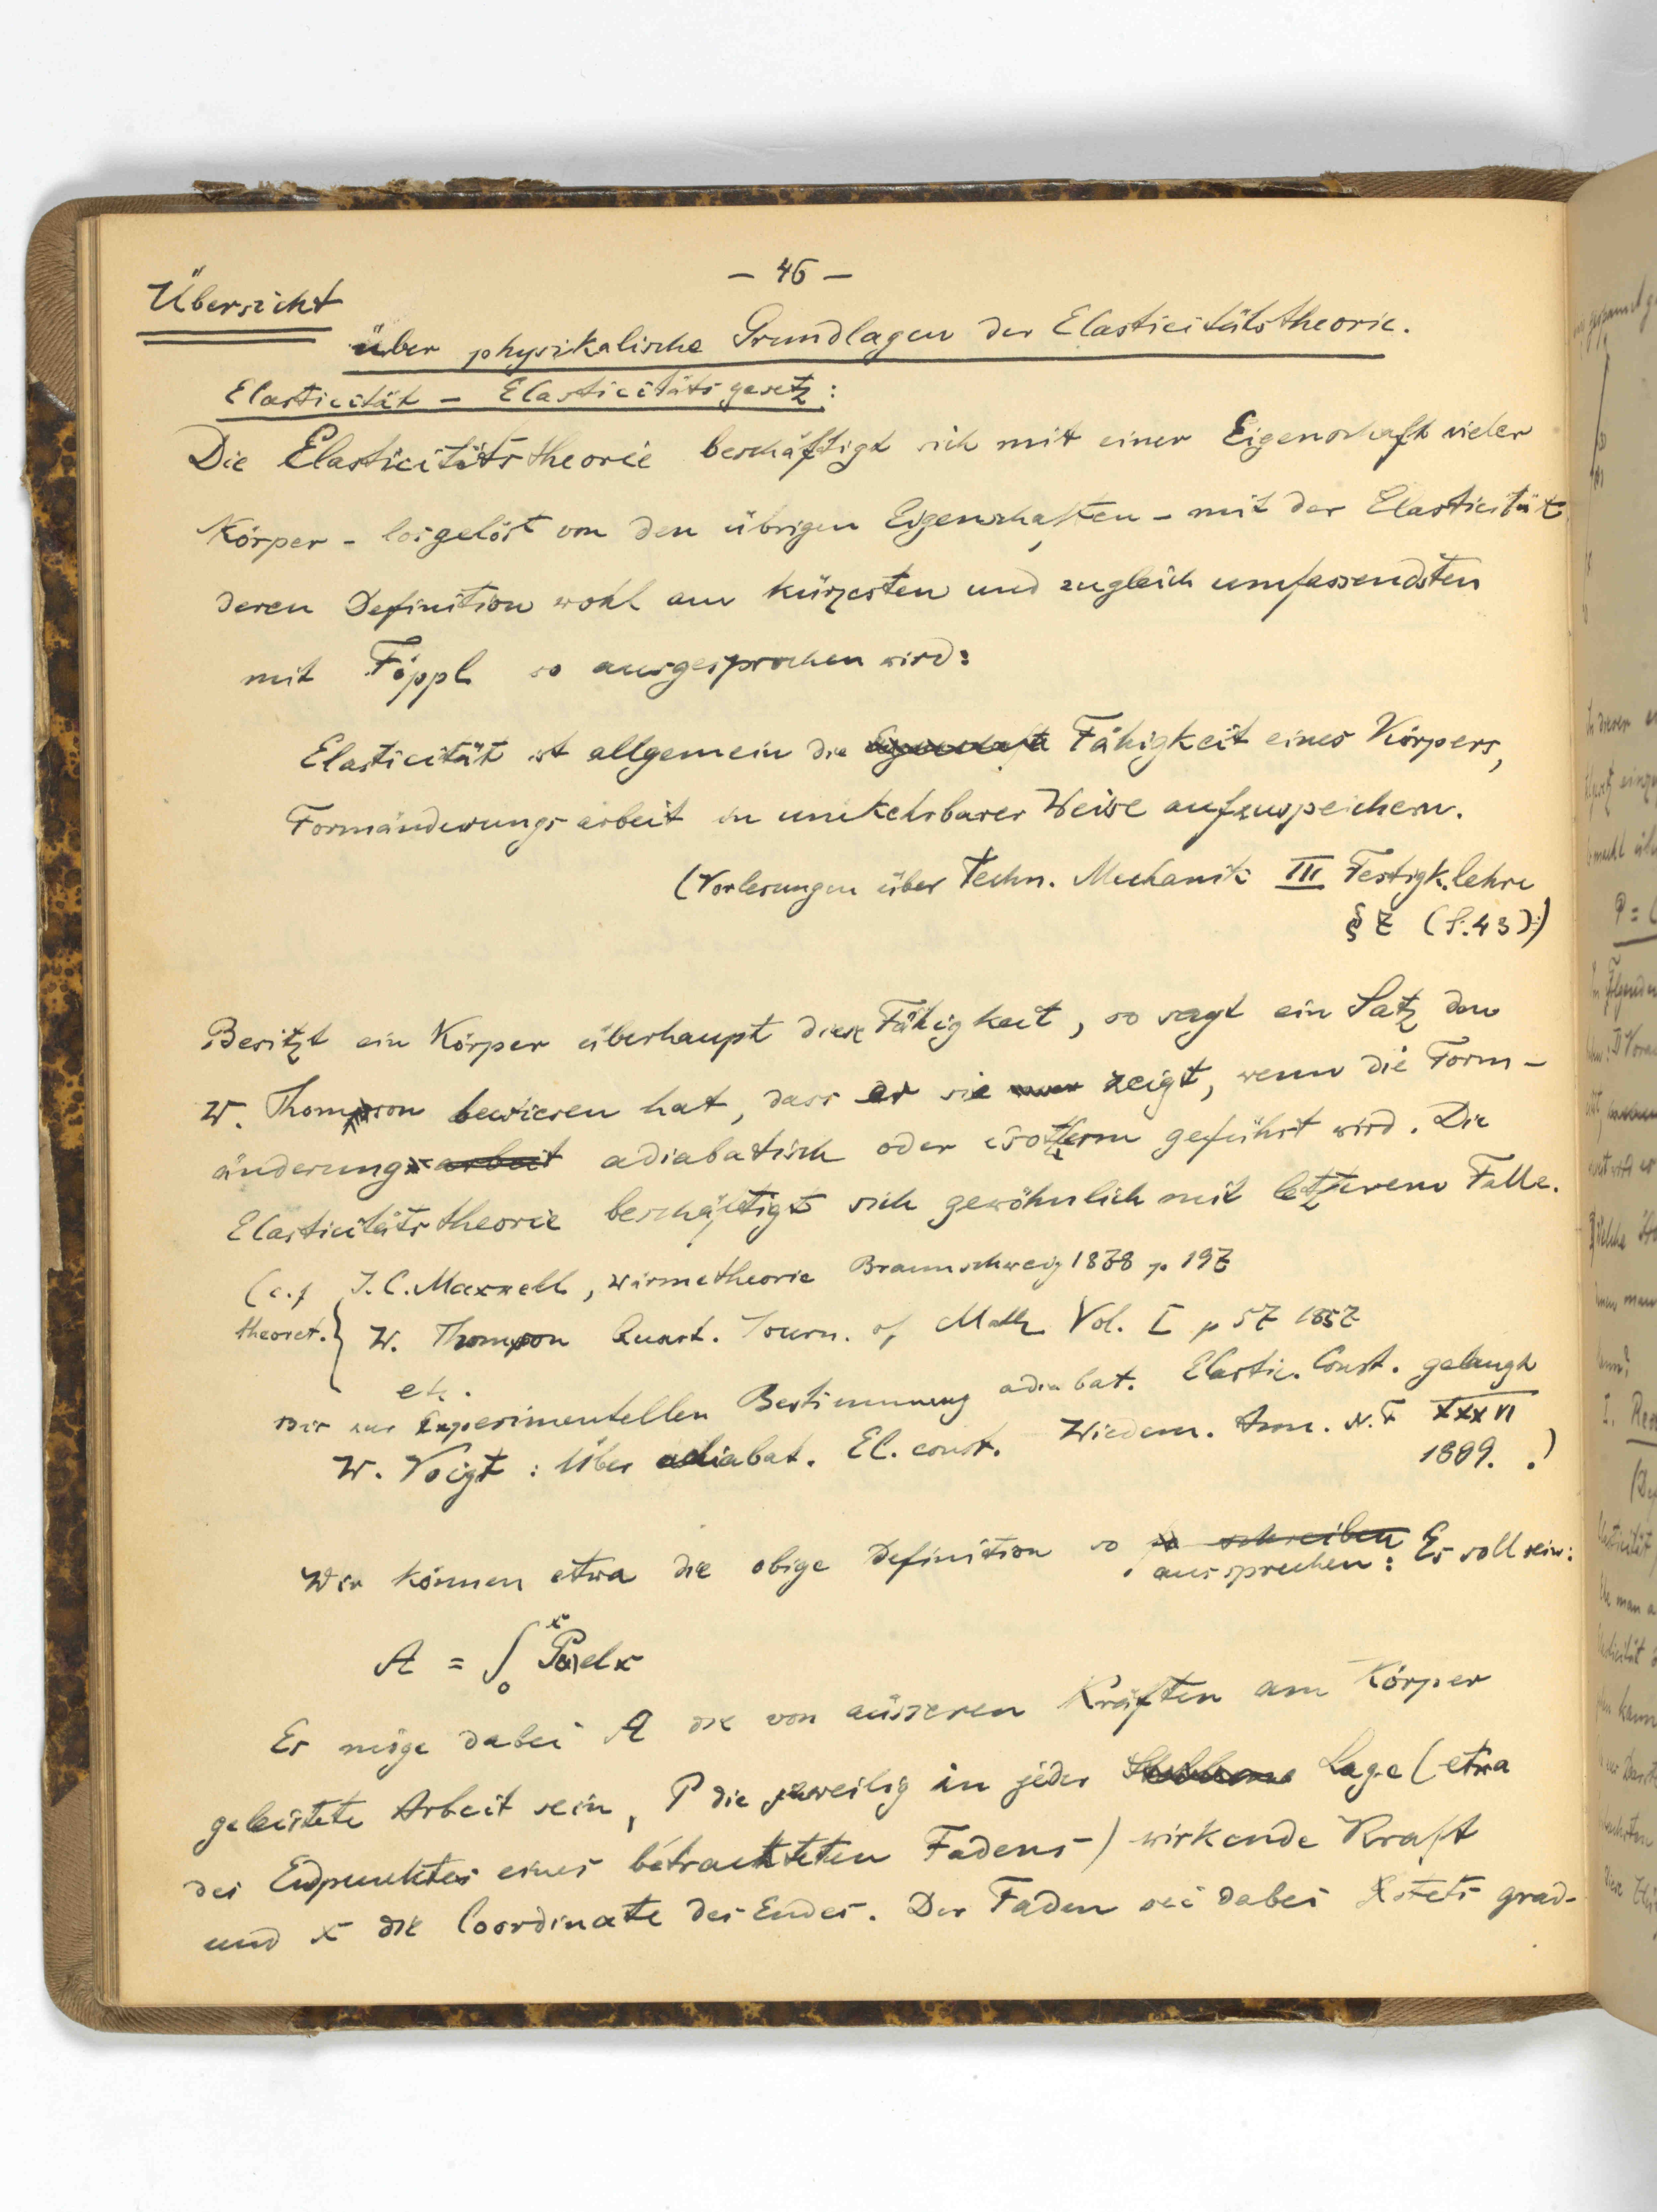 – 46 –
Übersicht
über physikalische Grundlagen der Elasticitätstheorie.
Elasticität – Elasticitätsgesetz:
Die Elasticitätstheorie beschäftigt sich mit einer Eigenschaft vieler
Körper – losgelöst von den übrigen Eigenschaften – mit der Elasticität,
deren Definition wohl am kürzesten und zugleich umfassendsten
mit Föppl so ausgesprochen wird:
Elasticität ist allgemein die Eigenschaft Fähigkeit eines Körpers,
Formänderungsarbeit in umkehrbarer Weise aufzuspeichern.
(Vorlesungen über Techn. Mechanik III Festigk.lehre
§ 7 (S. 43))
Besitzt ein Körper überhaupt diese Fähigkeit, so sagt ein Satz den
W. Thomson bewiesen hat, dass er sie nur zeigt, wenn die Form-
änderungsarbeit adiabatisch oder isotherm geführt wird. Die
Elasticitätstheorie beschäftigt sich gewöhnlich mit letzterem Falle.
(c.f J. C. Maxwell, Wärmetheorie Braunschweig 1878 p 197
theoret. } W. Thomson Quart. Journ. of Math Vol. I p 57 1857
etc.
zur Experimentellen Bestimmung adiabat. Elastic. Const. gelangt
W. Voigt: Über adiabat. El. const. Wiedem. Ann. N.F XXXVI
1889. .)
Wir können etwa die obige Definition so schreiben
aussprechen: Es soll sein:
A = ∫₀ˣ P(x)dx
Es möge dabei A die von äusseren Kräften am Körper
geleistete Arbeit sein, P die jeweilig in jeder Lage (etwa
des Endpunktes eines betrachteten Fadens) wirkende Kraft
und x die Coordinate des Endes. Der Faden sei dabei stets grad-